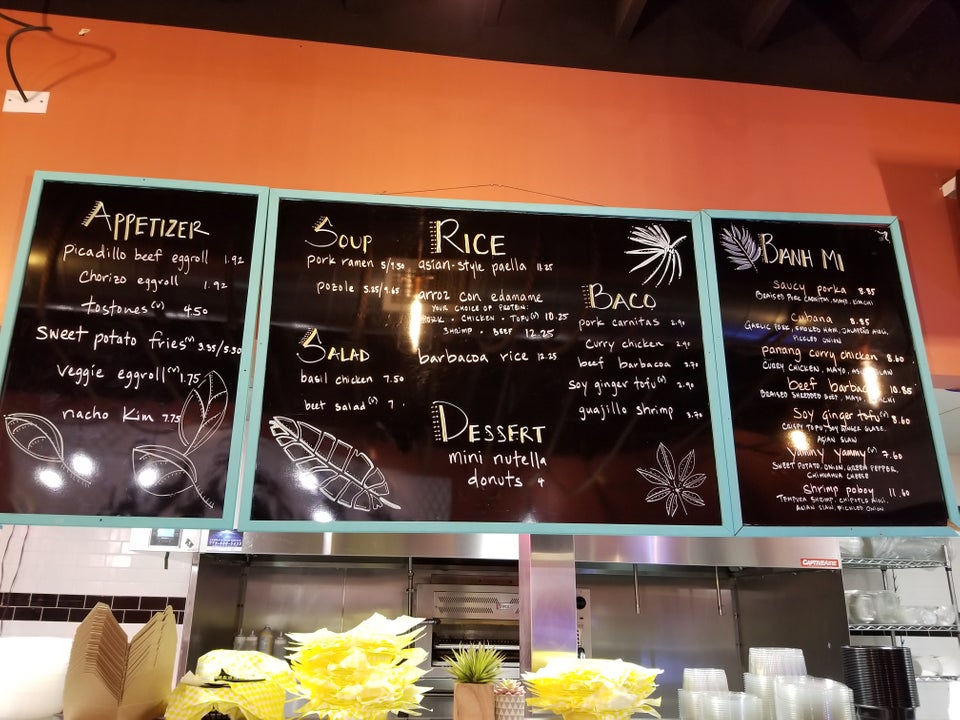 APPETIZER
picadillo beef eggroll 1.92
Chorizo eggroll 1.92
tostones (v) 4.50
Sweet potato fries (v) 3.35/5.50
veggie eggroll (v) 1.75
nacho Kim 7.75
SOUP
pork ramen 5/9.50
pozole 5.25/9.65
SALAD
basil chicken 7.50
beet salad (v) 7
RICE
asian-style paella 11.25
arroz con edamame
YOUR CHOICE OF PROTEIN:
PORK • CHICKEN • TOFU (v) 10.25
SHRIMP • BEEF 12.25
barbacoa rice 12.25
DESSERT
mini nutella
donuts 4
BACO
pork carnitas 2.90
curry chicken 2.90
beef barbacoa 3.70
soy ginger tofu (v) 2.90
guajillo shrimp 3.70
BANH MI
saucy porka 8.85
BRAISED PORK CARNITAS, MAYO, KIMCHI
cubana 8.85
GARLIC PORK, SMOKED HAM, JALAPEÑO AIOLI,
PICKLED ONION
panang curry chicken 8.60
CURRY CHICKEN, MAYO, ASIAN SLAW
beef 10.85
BRAISED SHREDDED BEEF, MAYO,
Soy Ginger tofu (v) 8.60
CRISPY TOFU, SOY GINGER GLAZE,
ASIAN SLAW
yummy yammy (v) 7.60
SWEET POTATO, ONION, GREEN PEPPER,
CHIHUAHUA CHEESE
Shrimp poboy 11.60
TEMPURA SHRIMP, CHIPOTLE AIOLI,
ASIAN SLAW, PICKLED ONION
CAPTIVEAIRE